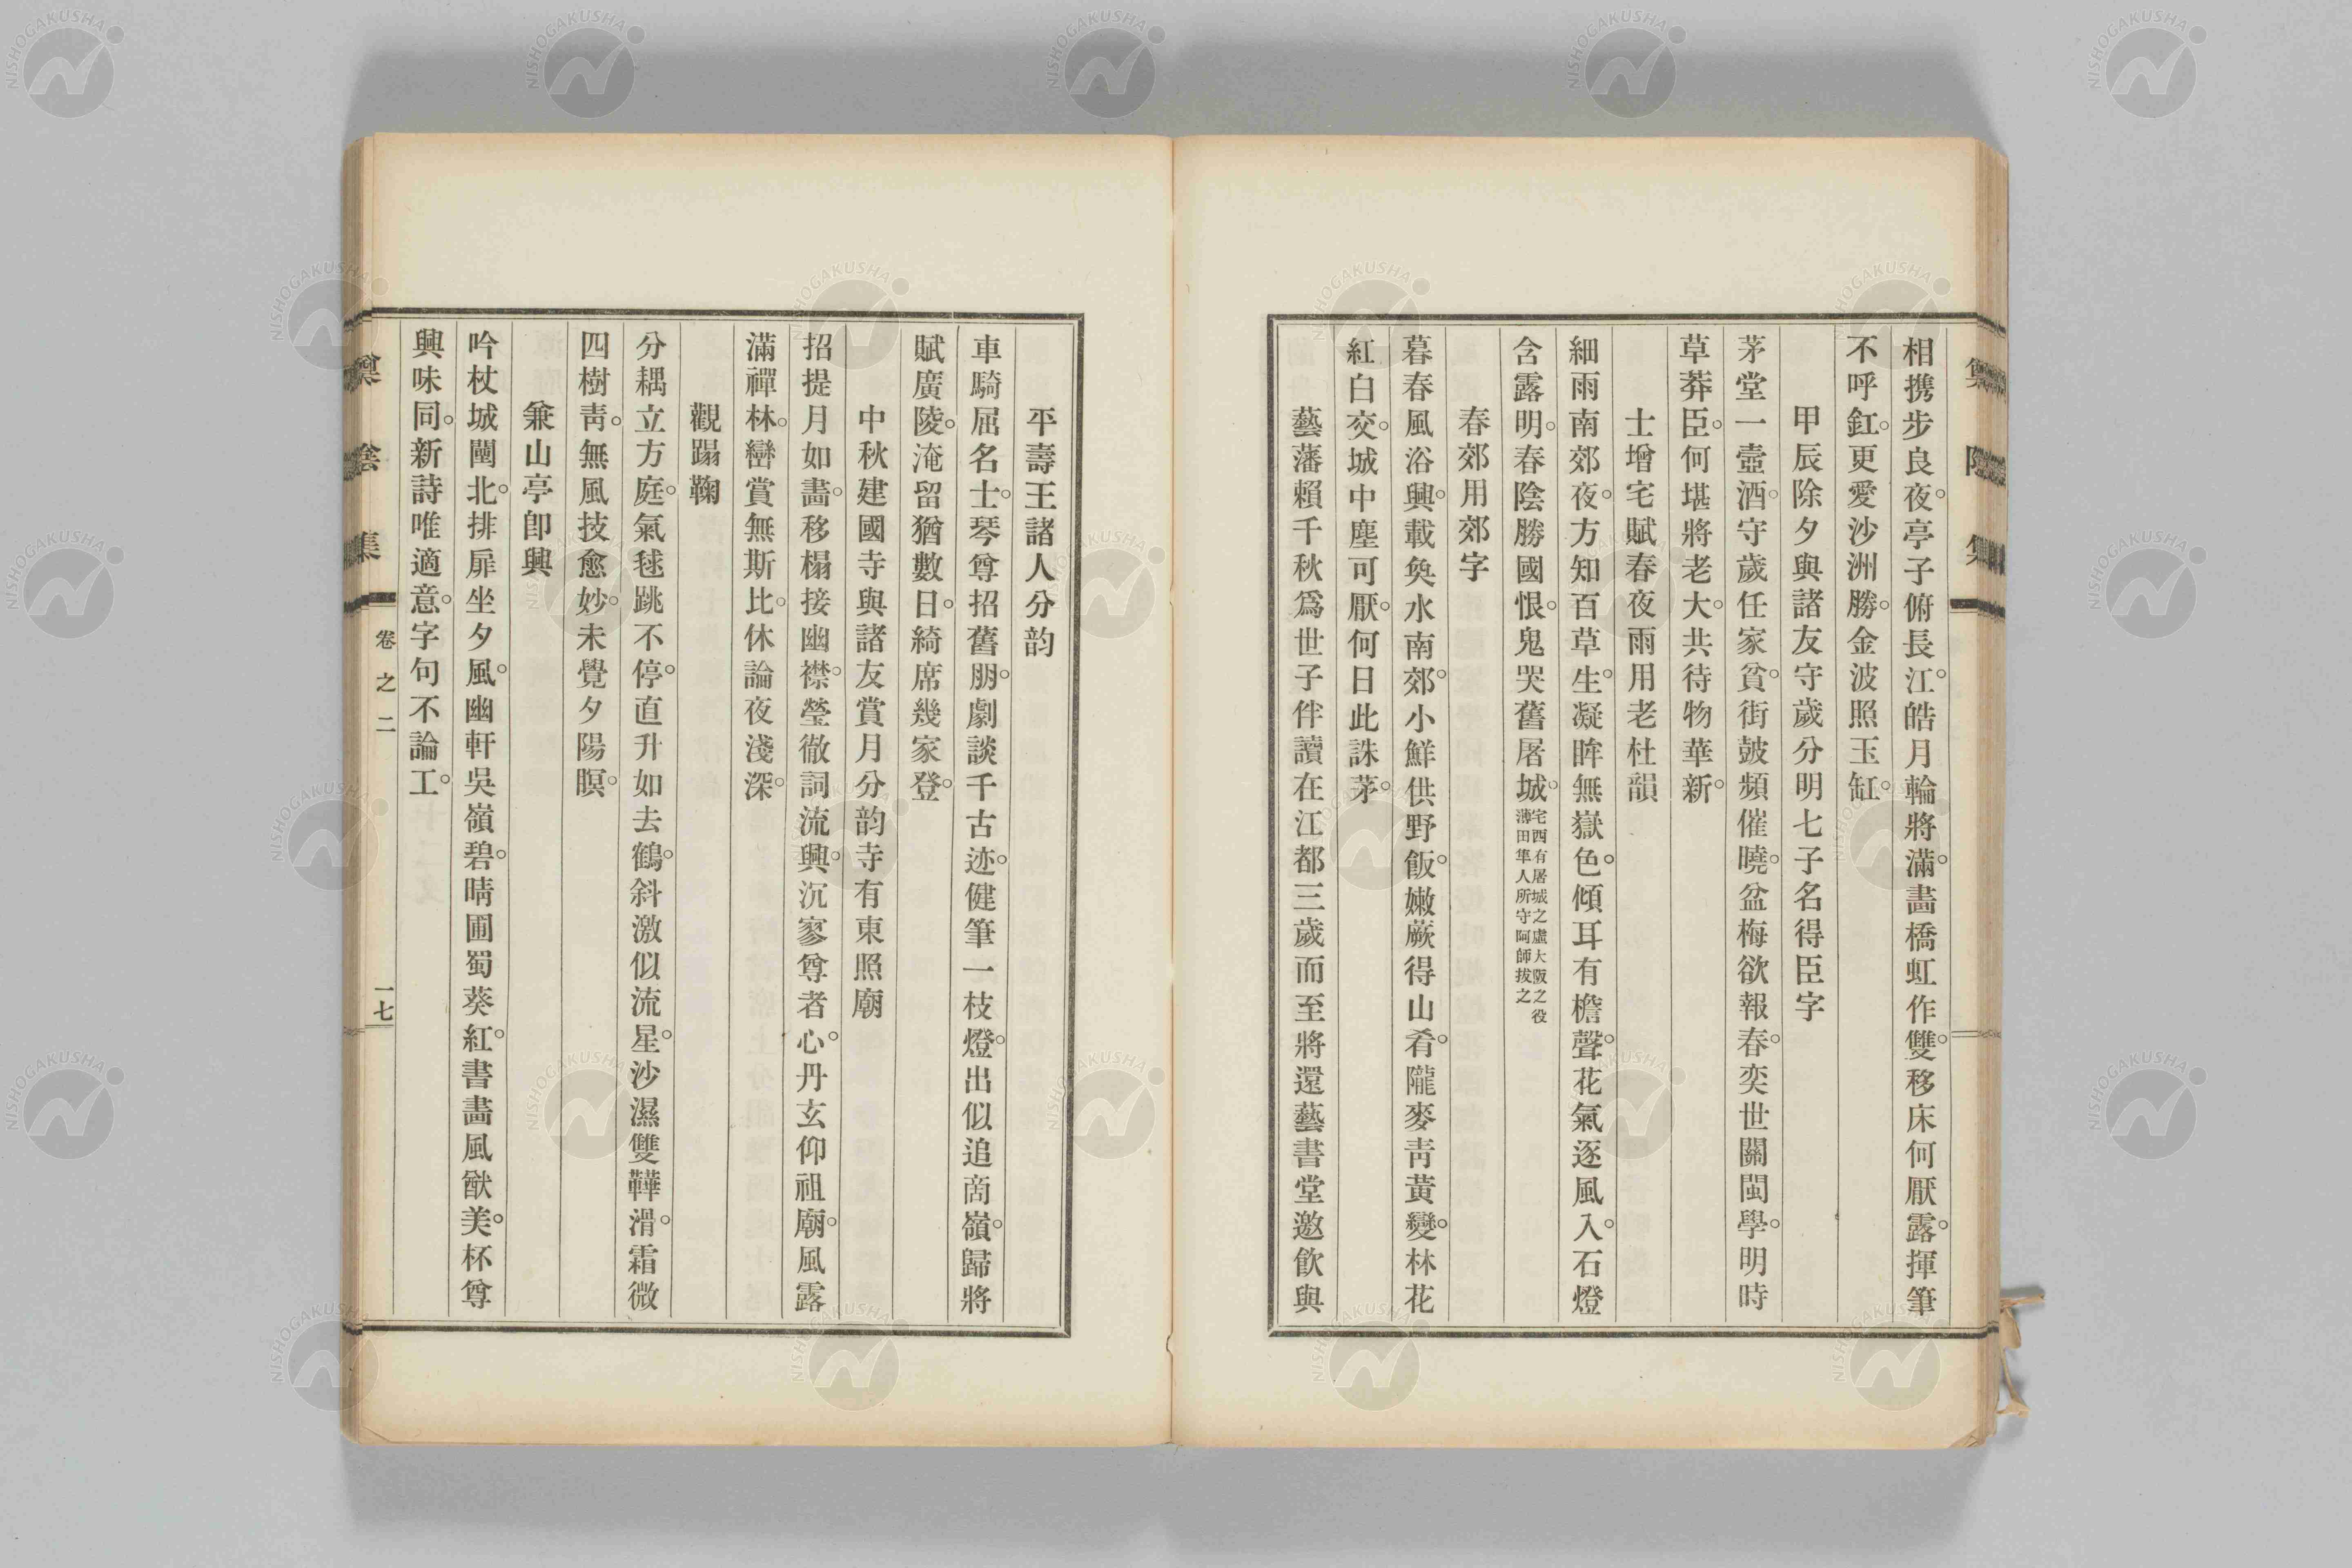 相携步良夜。亭子俯長江。皓月輪將滿。畫橋虹作雙。移床何厭露。揮筆
不呼釭。更愛沙洲勝。金波照玉缸。
甲辰除夕與諸友守歲分明七子名得臣字
茅堂一壺酒。守歲任家貧。街皷頻催曉。盆梅欲報春。奕世關閩學。明時
草莽臣。何堪將老大。共待物華新。
士增宅賦春夜雨用老杜韻
細雨南郊夜。方知百草生。凝眸無嶽色。傾耳有檐聲。花氣逐風入。石燈
含露明。春陰勝國恨。鬼哭舊屠城。宅西有屠城之虛大阪之役
薄田隼人所守阿師拔之
春郊用郊字
暮春風浴興。載奐水南郊。小鮮供野飯。嫩蕨得山肴。隴麥靑黃變。林花
紅白交。城中塵可厭。何日此誅茅。
藝藩賴千秋爲世子伴讀在江都三歲而至將還藝書堂邀飮與
平壽王諸人分韵
車騎屈名士。琴尊招舊朋。劇談千古迹。健筆一枝燈。出似追商嶺。歸將
賦廣陵。淹留猶數日。綺席幾家登。
中秋建國寺與諸友賞月分韵寺有東照廟
招提月如晝。移榻接幽襟。瑩徹詞流興。沉寥尊者心。丹玄仰祖廟。風露
滿禪林。巒賞無斯比。休論夜淺深。
觀蹋鞠
分耦立方庭。氣毬跳不停。直升如去鶴。斜激似流星。沙濕雙鞾滑。霜微
四樹靑。無風技愈妙。未覺夕陽瞑。
兼山亭卽興
吟杖城闉北。排扉坐夕風。幽軒吳嶺碧。晴圃蜀葵紅。書畫風猷美。杯尊
興味同。新詩唯適意。字句不論工。
卷之二
一七
NISHOGAKUSHA